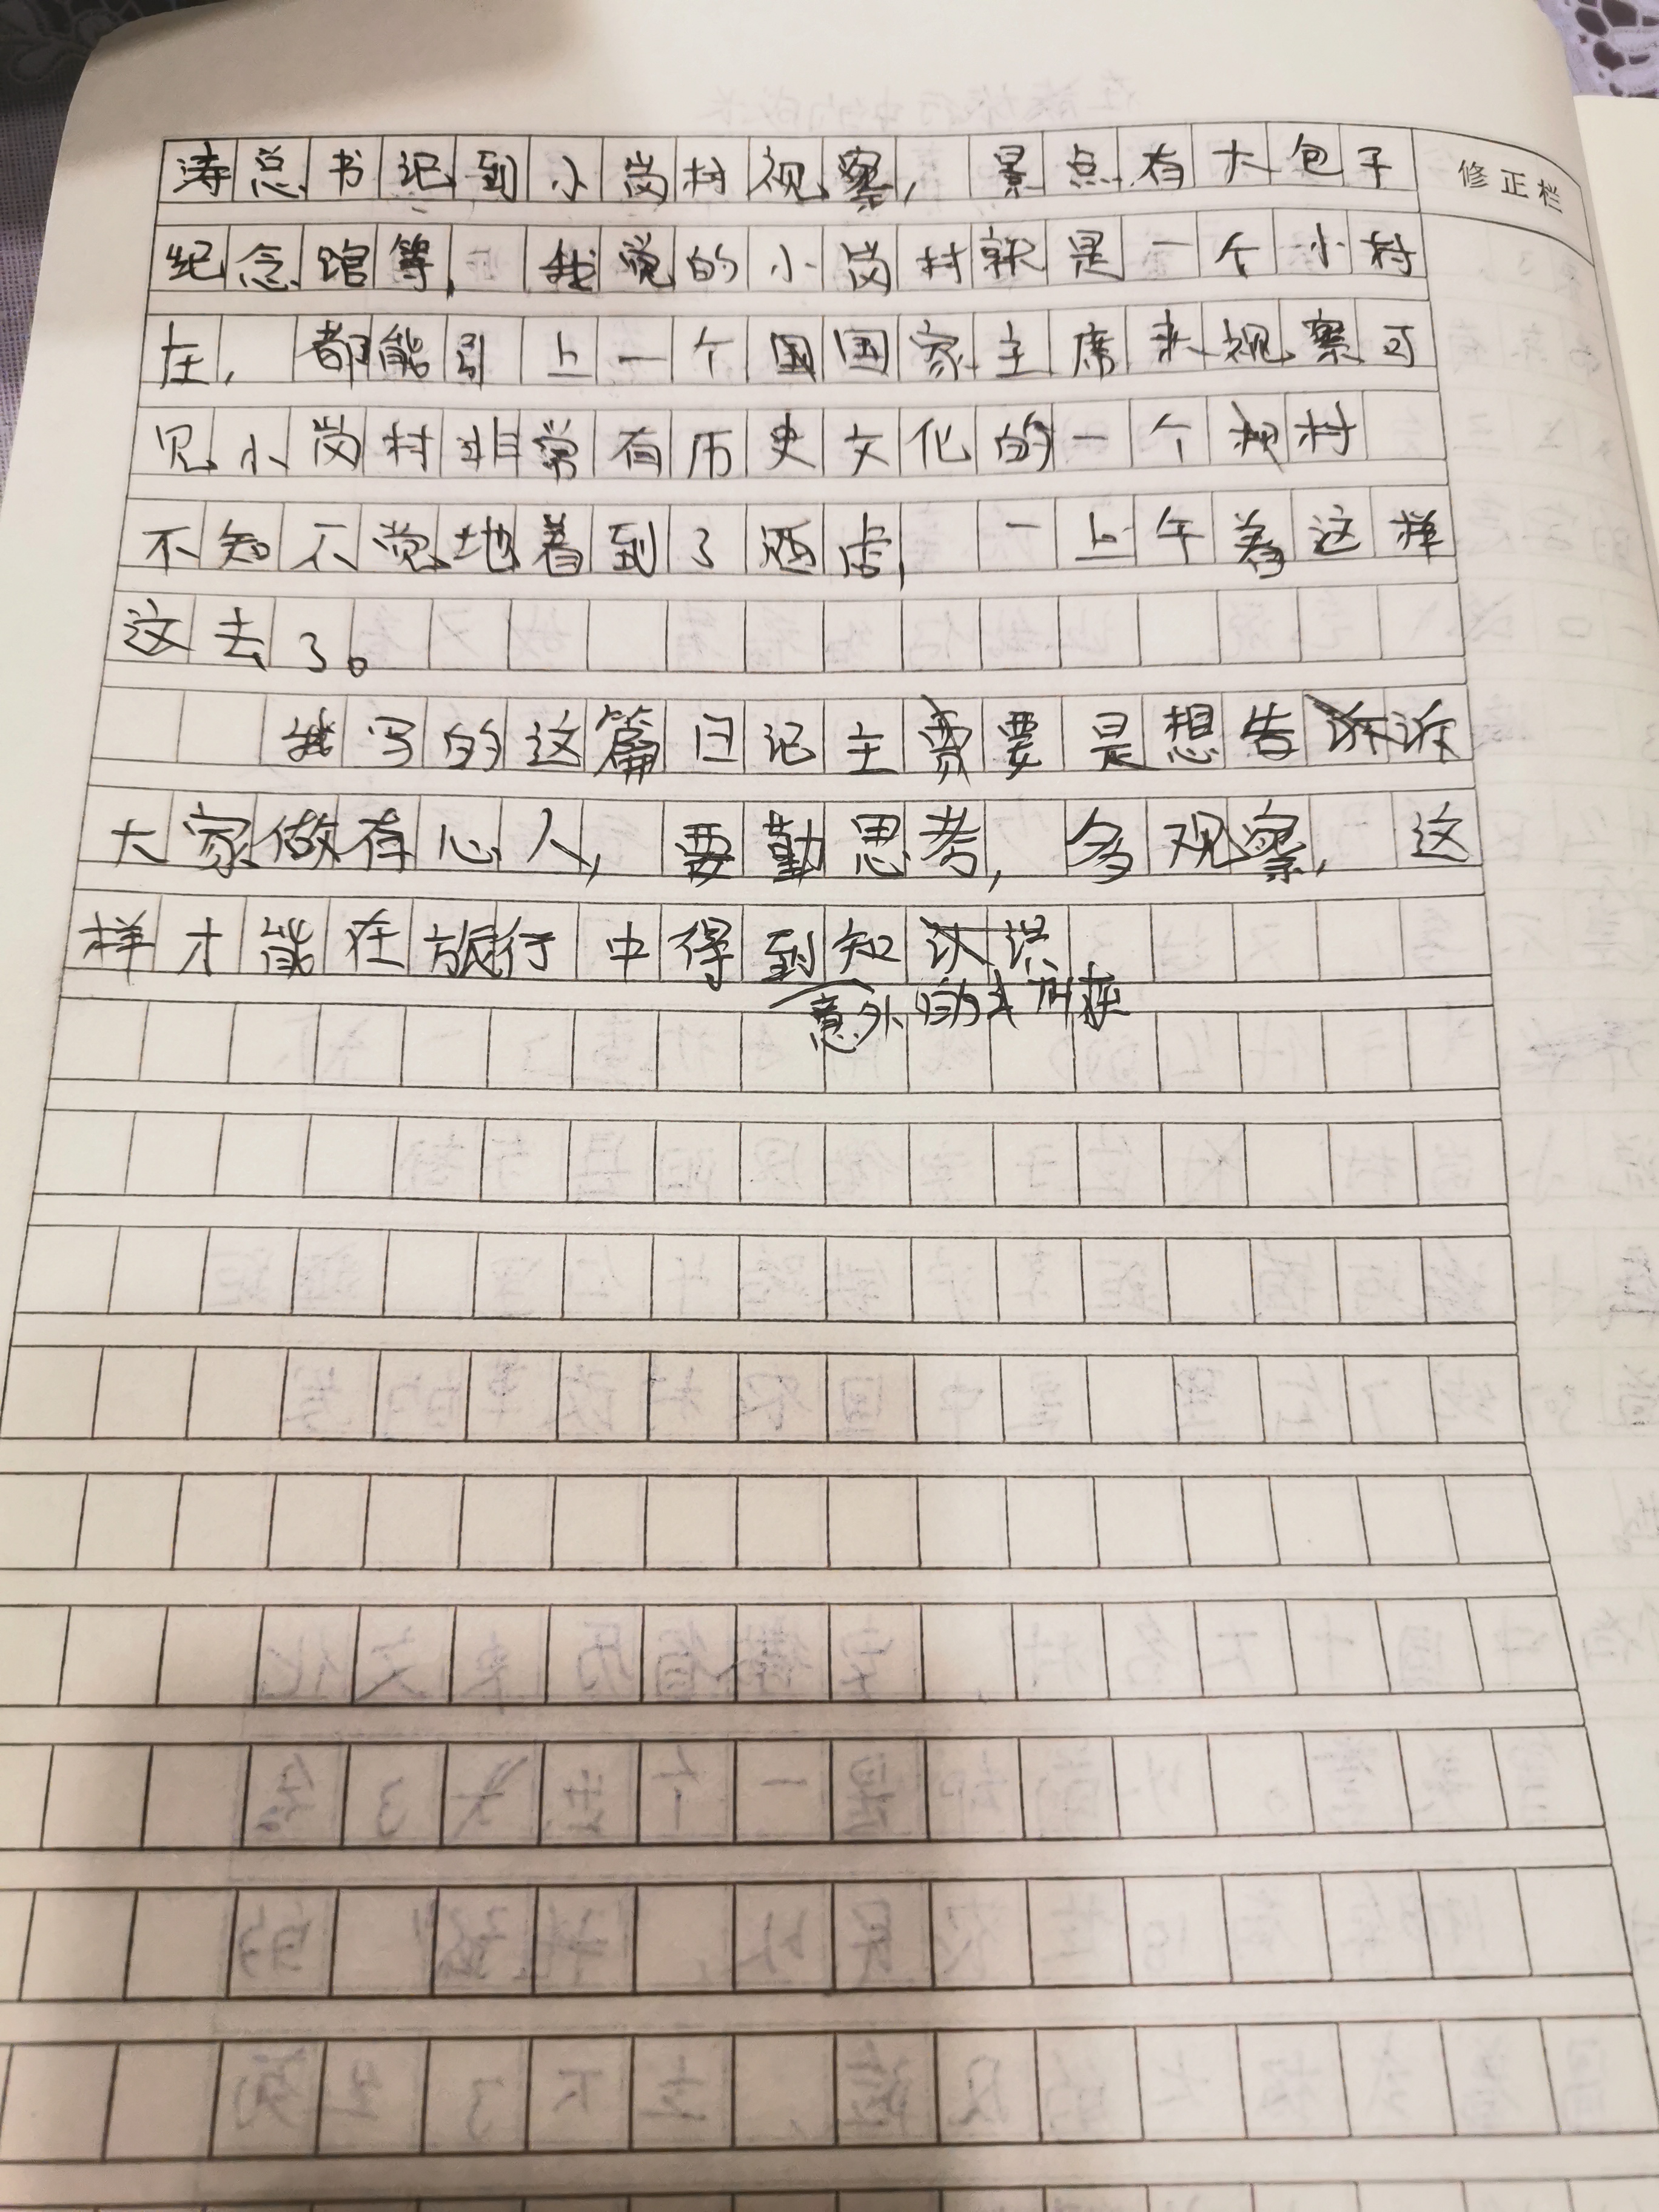 修正栏
涛总书记到小岗村视察，景点有大包干
纪念馆等，我觉的小岗村就是一个小村
庄，都能引上一个国国家主席来视察可
见小岗村非常有历史文化的一个村
不知不觉地着到了酒店，一上午着这样
这去了。
我写的这篇日记主要是想告诉
大家做有心人，要勤思考，多观察，这
样才能在旅行中得到知识
意外的